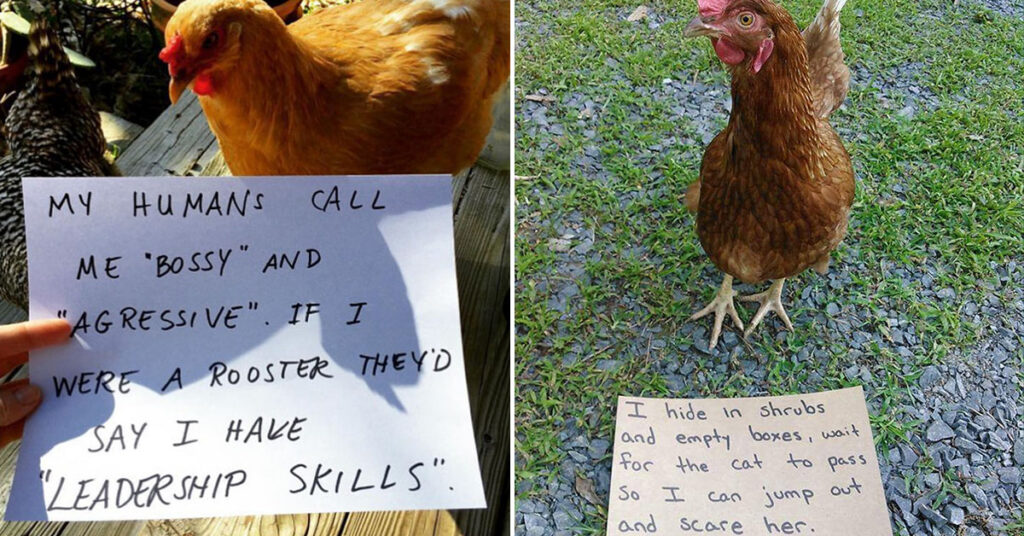 MY HUMANS CALL
ME "BOSSY" AND
"AGRESSIVE". IF I
WERE A ROOSTER THEY'D
SAY I HAVE
"LEADERSHIP SKILLS".
I hide in shrubs
and empty boxes, wait
for the cat to pass
so I can jump out
and scare her.